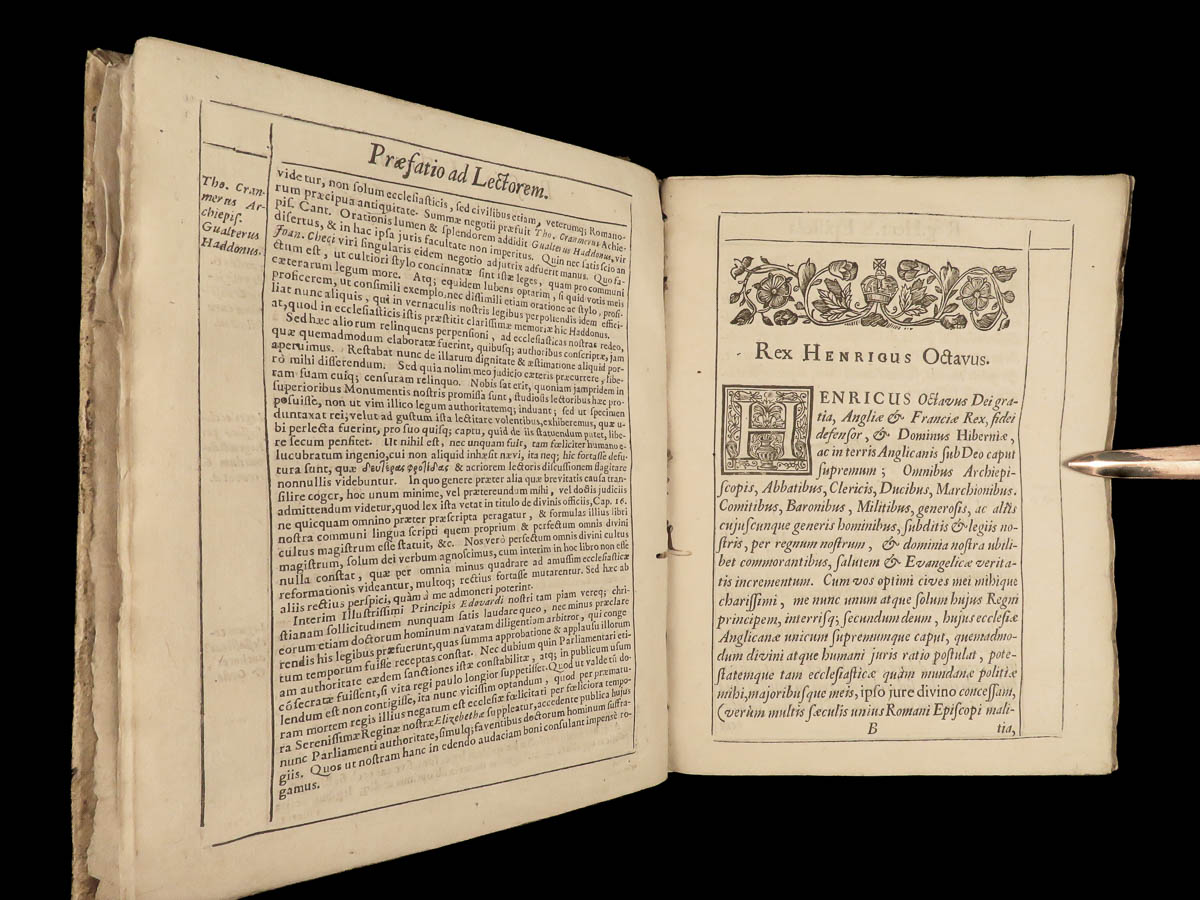 Præfatio ad Lectorem.
Tho. Cran-
merus Ar-
chiepis.
Gualterus
Haddonus.
videtur, non solum ecclesiasticis, sed civilibus etiam, veterumq; Romano-
rum præcipua antiquitate. Summæ negotii præfuit Tho. Cranmerus Achie-
pis. Cant. Orationis lumen & splendorem addidit Gualterus Haddonus, vir
disertus, & in hac ipsa juris facultate non imperitus. Quin nec satis scio an
Joan. Checi viri singularis eidem negotio adjutrix adfuerit manus. Quo fa-
ctum est, ut cultiori stylo concinnatæ sint istæ leges, quam pro communi
cæterarum legum more. Atq; equidem lubens optarim, si quid votis meis
proficerem, ut consimili exemplo, nec dissimili etiam oratione ac stylo, prosi-
liat nunc aliquis, qui in vernaculis nostris legibus perpoliendis idem effici-
at, quod in ecclesiasticis istis præstitit clarissimæ memoriæ hic Haddonus.
Sed hæc aliorum relinquens perpensioni, ad ecclesiasticas nostras redeo,
quæ quemadmodum elaboratæ fuerint, quibusq; authoribus conscriptæ, jam
aperuimus. Restabat nunc de illarum dignitate & æstimatione aliquid por-
rò mihi disserendum. Sed quia nolim meo judicio cæteris præcurrere, libe-
ram suam cuiq; censuram relinquo. Nobis sat erit, quoniam jampridem in
superioribus Monumentis nostris promissa sunt, studiosis lectoribus hæc pro-
posuisse, non ut vim illico legum authoritatemq; induant; sed ut specimen
duntaxat rei; velut ad gustum ista lectitare volentibus, exhiberemus, quæ u-
bi perlecta fuerint, pro suo quisq; captu, quid de iis statuendum putet, libe-
re secum pensitet. Ut nihil est, nec unquam fuit, tam fœliciter humano e-
lucubratum ingenio, cui non aliquid inhæsit nævi, ita neq; hic fortasse defu-
tura sunt, quæ δευτέρας φροντίδας & acriorem lectoris discussionem flagitare
nonnullis videbuntur. In quo genere præter alia quæ brevitatis causa tran-
silire cogor, hoc unum minime, vel prætereundum mihi, vel doctis judiciis
admittendum videtur, quod lex ista vetat in titulo de divinis officiis, Cap. 16.
ne quicquam omnino præter præscripta peragatur, & formulas illius libri
nostra communi lingua scripti quem proprium & perfectum omnis divini
cultus magistrum esse statuit, &c. Nos verò perfectum omnis divini cultus
magistrum, solum dei verbum agnoscimus, cum interim in hoc libro non esse
nulla constat, quæ per omnia minus quadrare ad amussim ecclesiasticæ
reformationis videantur, multoq; rectius fortasse mutarentur. Sed hæc ab
aliis rectius perspici, quàm à me admoneri poterint.
Interim Illustrissimi Principis Edovardi nostri tam piam vereq; chri-
stianam sollicitudinem nunquam satis laudare queo, nec minus præclare
eorum etiam doctorum hominum navatam diligentiam arbitror, qui conge
rendis his legibus præfuerunt, quas summa approbatione & applausu illorum
tum temporum fuisse receptas constat. Nec dubium quin Parliamentari eti-
am authoritate eædem sanctiones istæ constabilitæ, atq; in publicum usum
cōsecratæ fuissent, si vita regi paulo longior suppetisset. Quod ut valde tū do-
lendum est non contigisse, ita nunc vicissim optandum, quod per præmatu-
ram mortem regis illius negatum est ecclesiæ fœlicitati per fœliciora tempo-
ra Serenissimæ Reginæ nostræ Elizebethæ suppleatur, accedente publica hujus
nunc Parliamenti authoritate, simulq; faventibus doctorum hominum suffra-
giis. Quos ut nostram hanc in edendo audaciam boni consulant impensè ro-
gamus.
Rex Henricus Octavus.
HENRICUS Octavus Dei gra-
tia, Angliæ & Franciæ Rex, fidei
defensor, & Dominus Hiberniæ,
ac in terris Anglicanis sub Deo caput
supremum; Omnibus Archiepi-
scopis, Abbatibus, Clericis, Ducibus, Marchionibus.
Comitibus, Baronibus, Militibus, generosis, ac aliis
cujuscunque generis hominibus, subditis & legiis no-
stris, per regnum nostrum, & dominia nostra ubili-
bet commorantibus, salutem & Evangelicæ verita-
tis incrementum. Cum vos optimi cives mei mihique
charissimi, me nunc unum atque solum hujus Regni
principem, interrisq; secundum deum, hujus ecclesiæ
Anglicanæ unicum supremumque caput, quemadmo-
dum divini atque humani juris ratio postulat, pote-
statemque tam ecclesiasticæ quàm mundanæ politiæ
mihi, majoribusque meis, ipso jure divino concessam,
(verùm multis sæculis unius Romani Episcopi mali-
B tia,